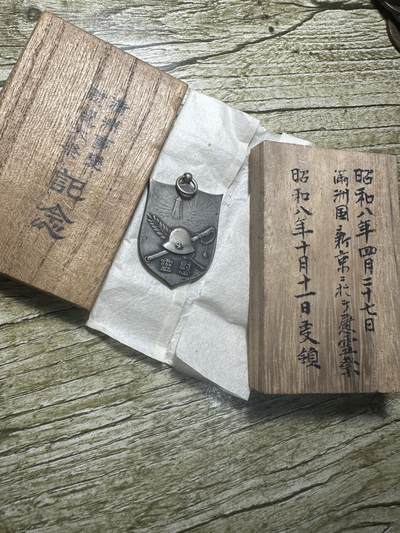 記念
慰靈
昭和八年四月二十七日
滿洲国新京ニ於ケ慰霊祭
昭和八年十月十一日受領